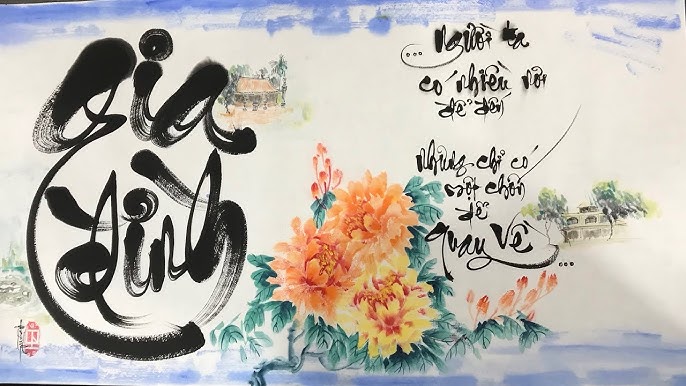 Gia
đình
... Người ta
có nhiều nơi
để đến
nhưng chỉ có
một chốn
để
quay về
...